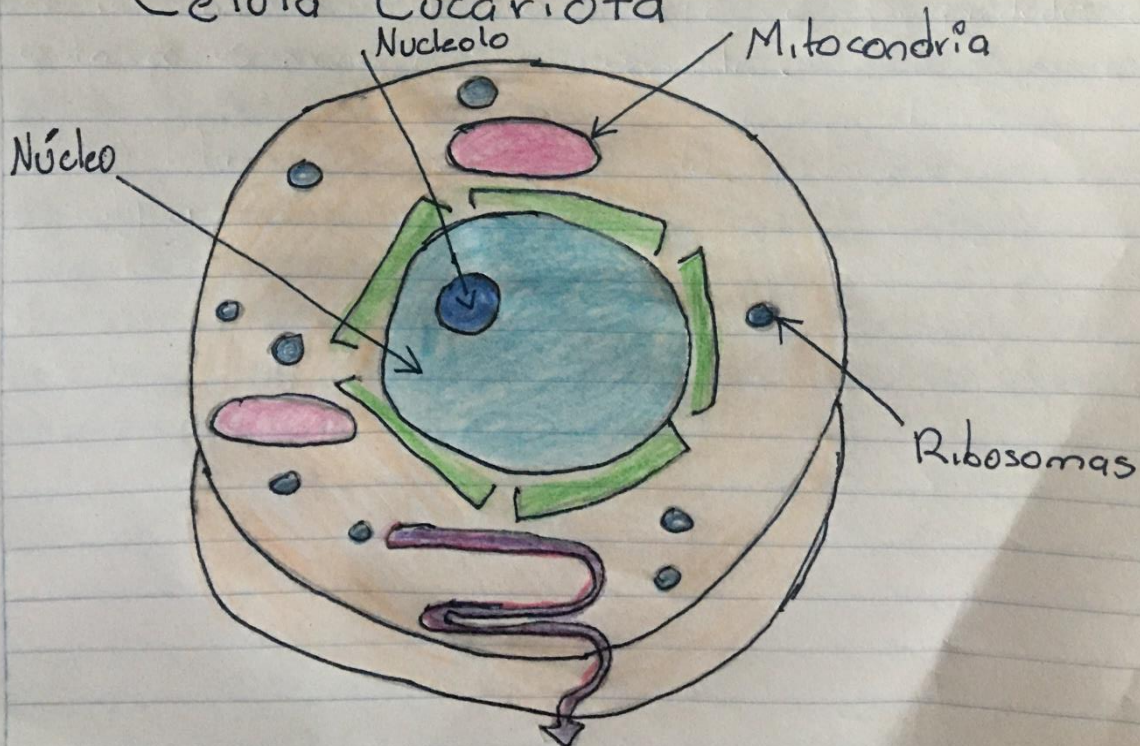 Célula Eucariota
Nucleolo
Mitocondria
Núcleo
Ribosomas